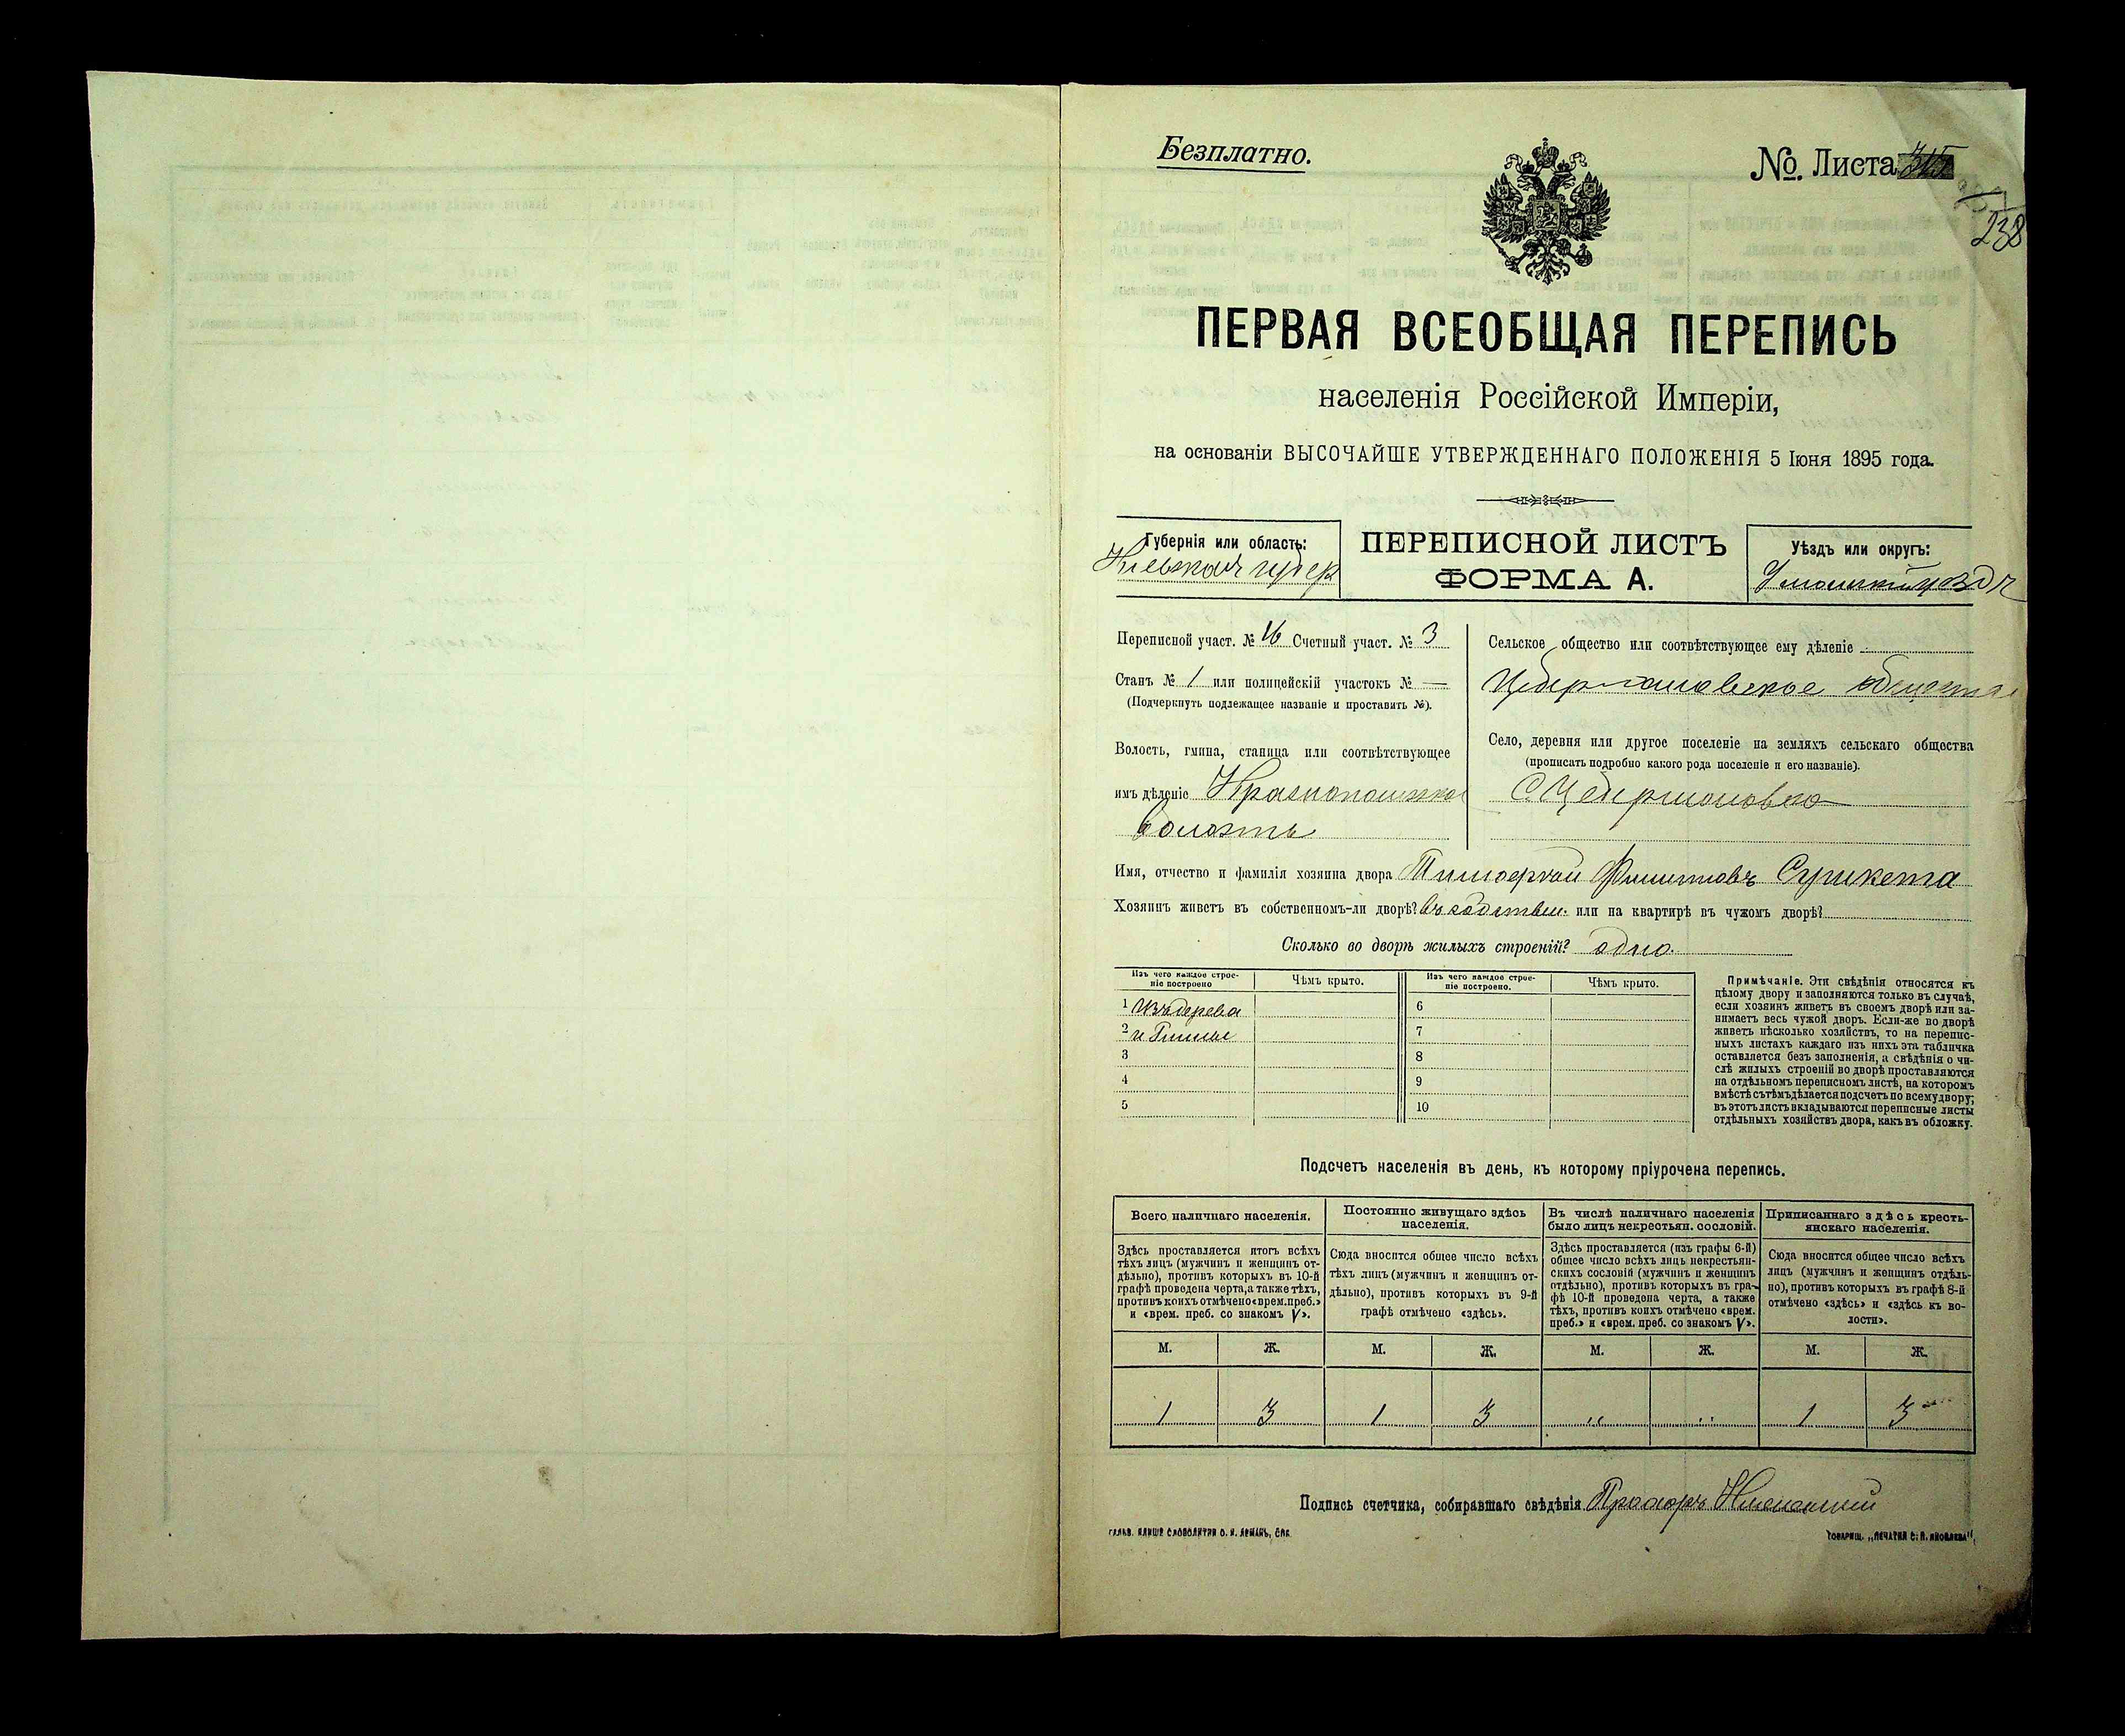 Безплатно.
№. Листа
238
ПЕРВАЯ ВСЕОБЩАЯ ПЕРЕПИСЬ
населенія Россійской Имперіи,
на основаніи ВЫСОЧАЙШЕ УТВЕРЖДЕННАГО ПОЛОЖЕНІЯ 5 Іюня 1895 года.
Губернія или область:
Кіевская губер
ПЕРЕПИСНОЙ ЛИСТЪ
ФОРМА А.
Уѣздъ или округъ:
Уманскій уѣздъ
Переписной участ. № 16 Счетный участ. № 3
Станъ № 1 или полицейскій участокъ № —
(Подчеркнуть подлежащее названіе и проставить №).
Волость, гмина, станица или соотвѣтствующее
имъ дѣленіе
волость
Сельское общество или соотвѣтствующее ему дѣленіе
Цебермановское общество
Село, деревня или другое поселеніе на земляхъ сельскаго общества
(прописать подробно какого рода поселеніе и его названіе).
С. Цебермановка
Имя, отчество и фамилія хозяина двора Тимофей Филиповъ
Хозяинъ живетъ въ собственномъ-ли дворѣ? въ собствен. или на квартирѣ въ чужомъ дворѣ?
Сколько во дворѣ жилыхъ строеній? одно.
Изъ чего каждое строе-
ніе построено
Чѣмъ крыто.
Изъ чего каждое строе-
ніе построено.
Чѣмъ крыто.
1 Изъ дерева
2 и Глины
3
4
5
6
7
8
9
10
Примѣчаніе. Эти свѣдѣнія относятся къ
цѣлому двору и заполняются только въ случаѣ,
если хозяинъ живетъ въ своемъ дворѣ или за-
нимаетъ весь чужой дворъ. Если-же во дворѣ
живетъ нѣсколько хозяйствъ, то на перепис-
ныхъ листахъ каждаго изъ нихъ эта табличка
оставляется безъ заполненія, а свѣдѣнія о чи-
слѣ жилыхъ строеній во дворѣ проставляются
на отдѣльномъ переписномъ листѣ, на которомъ
вмѣстѣ съ тѣмъ дѣлается подсчетъ по всему двору;
въ этотъ листъ вкладываются переписные листы
отдѣльныхъ хозяйствъ двора, какъ въ обложку.
Подсчетъ населенія въ день, къ которому пріурочена перепись.
Всего наличнаго населенія.
Здѣсь проставляется итогъ всѣхъ
тѣхъ лицъ (мужчинъ и женщинъ от-
дѣльно), противъ которыхъ въ 10-й
графѣ проведена черта, а также тѣхъ,
противъ коихъ отмѣчено «врем. преб.»
и «врем. преб. со знакомъ V».
Постоянно живущаго здѣсь
населенія.
Сюда вносится общее число всѣхъ
тѣхъ лицъ (мужчинъ и женщинъ от-
дѣльно), противъ которыхъ въ 9-й
графѣ отмѣчено «здѣсь».
Въ числѣ наличнаго населенія
было лицъ некрестьян. сословій.
Здѣсь проставляется (изъ графы 6-й)
общее число всѣхъ лицъ некрестьян-
скихъ сословій (мужчинъ и женщинъ
отдѣльно), противъ которыхъ въ гра-
фѣ 10-й проведена черта, а также
тѣхъ, противъ коихъ отмѣчено «врем.
преб.» и «врем. преб. со знакомъ V».
Приписаннаго здѣсь кресть-
янскаго населенія.
Сюда вносится общее число всѣхъ
лицъ (мужчинъ и женщинъ отдѣль-
но), противъ которыхъ въ графѣ 8-й
отмѣчено «здѣсь» и «здѣсь къ во-
лости».
М. Ж. М. Ж. М. Ж. М. Ж.
1 3 1 3 " " 1 3
Подпись счетчика, собиравшаго свѣдѣнія Прохоръ